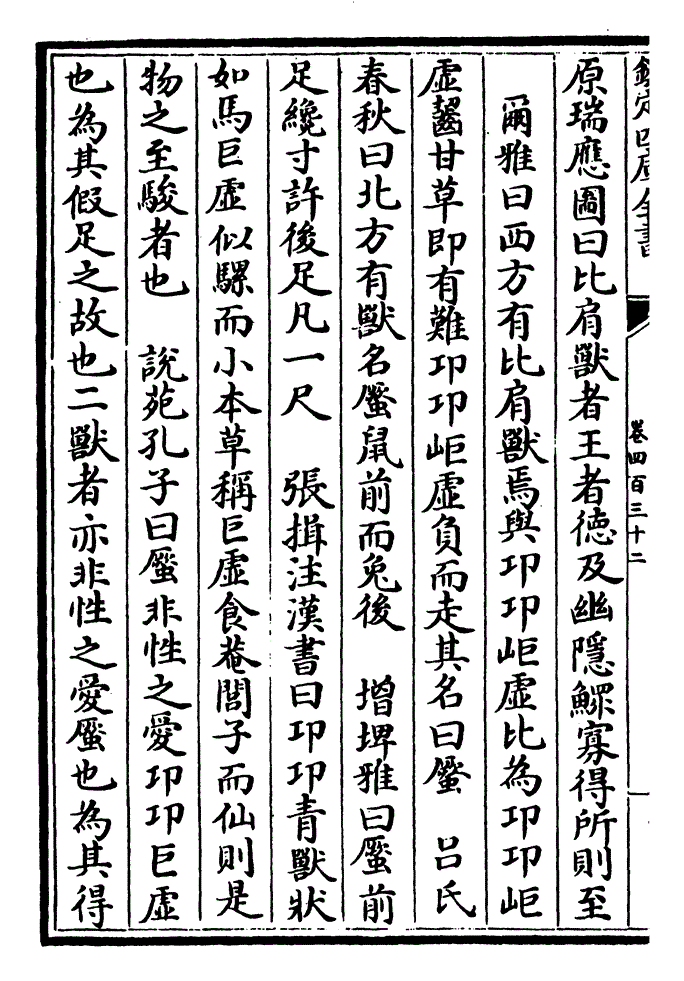 欽定四庫全書
卷四百三十二
原瑞應圖曰比肩獸者王者徳及幽隱鰥寡得所則至
爾雅曰西方有比肩獸焉與卭卭岠虚比為卭卭岠
虚齧甘草即有難卭卭岠虚負而走其名曰蟨　吕氏
春秋曰北方有獸名蟨鼠前而兔後　増埤雅曰蟨前
足纔寸許後足凡一尺　張揖注漢書曰卭卭青獸狀
如馬巨虚似騾而小本草稱巨虚食菴䕡子而仙則是
物之至駿者也　說苑孔子曰蟨非性之愛卭卭巨虚
也為其假足之故也二獸者亦非性之愛蟨也為其得